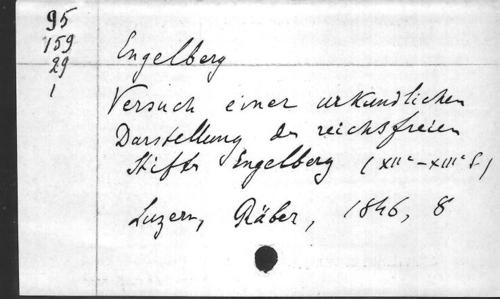 95
159
29
1
Engelberg
Versuch einer urkundlichen
Darstellung des reichsfreien
Stifts Engelberg (XIIe-XIIIe s.)
Luzern, Räber, 1846, 8°